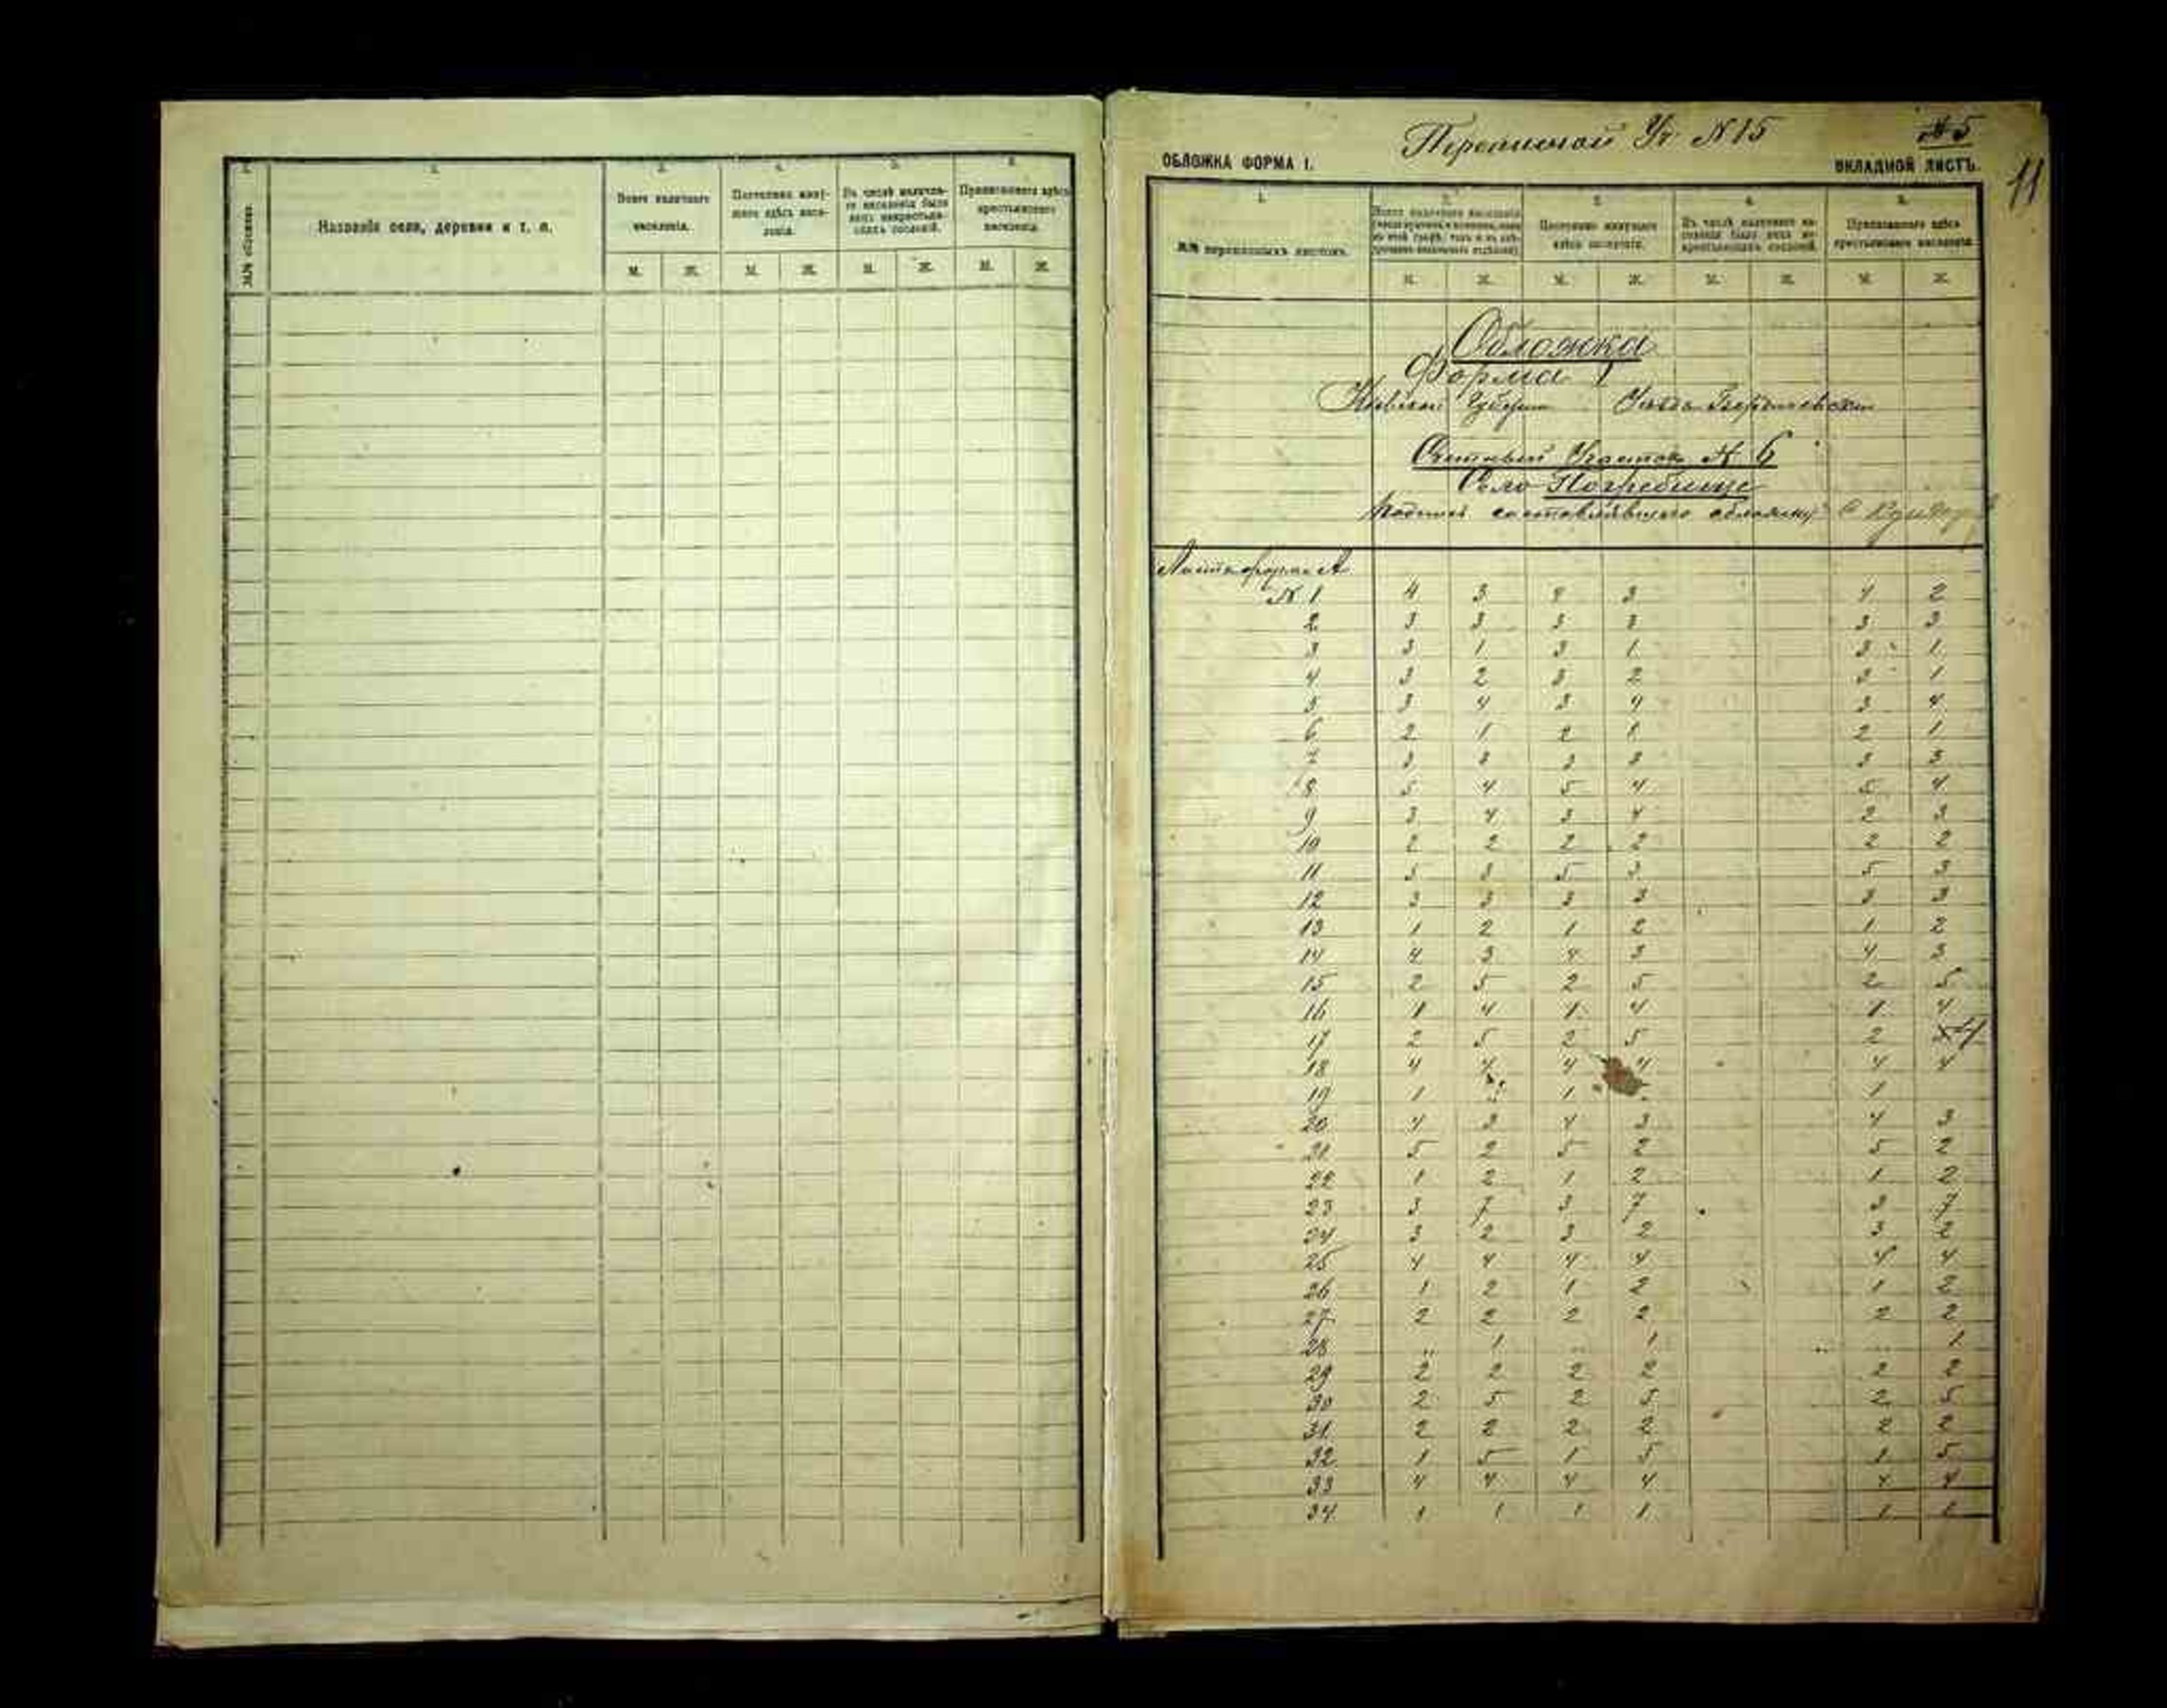 1.
2.
3.
4.
5.
6.
№№ обложекъ.
Названіе села, деревни и т. п.
Всего наличнаго населенія.
Постоянно живущаго здѣсь населенія.
Въ числѣ наличнаго населенія было лицъ некрестьянскихъ сословій.
Приписаннаго здѣсь крестьянскаго населенія.
М. Ж. М. Ж. М. Ж. М. Ж.
Переписной Уч. N 15
№ 5
11
ОБЛОЖКА ФОРМА I.
ВКЛАДНОЙ ЛИСТЪ.
1. 2. 3. 4. 5.
№№ переписныхъ листовъ.
Всего наличнаго населенія
Постоянно живущаго здѣсь населенія.
Въ числѣ наличнаго населенія было лицъ некрестьянскихъ сословій.
Приписаннаго здѣсь крестьянскаго населенія.
М. Ж. М. Ж. М. Ж. М. Ж.
Обложка
Форма 1
Кіевской Губерн Уѣзда Бердичевскаго
Счетный Участок № 6
Село Погребище
Подпись составлявшаго обложку
Листа форм А
N 1 4 3 4 3 4 2
2 3 3 3 3 3 3
3 3 1 3 1 3 1
4 3 2 3 2 3 1
5 3 4 3 4 3 4
6 2 1 2 1 2 1
7 3 3 3 3 3 3
8 5 4 5 4 5 4
9 3 4 3 4 2 3
10 2 2 2 2 2 2
11 5 3 5 3 5 3
12 3 3 3 3 3 3
13 1 2 1 2 1 2
14 4 3 4 3 4 3
15 2 5 2 5 2 5
16 1 4 1 4 1 4
17 2 5 2 5 2 4
18 4 4 4 4 4 4
19 1 1 1
20 4 3 4 3 4 3
21 5 2 5 2 5 2
22 1 2 1 2 1 2
23 3 7 3 7 3 7
24 3 2 3 2 3 2
25 4 4 4 4 4 4
26 1 2 1 2 1 2
27 2 2 2 2 2 2
28 .. 1 .. 1 ... 1
29 2 2 2 2 2 2
30 2 5 2 5 2 5
31 2 2 2 2 2 2
32 1 5 1 5 1 5
33 4 4 4 4 4 4
34 1 1 1 1 1 1